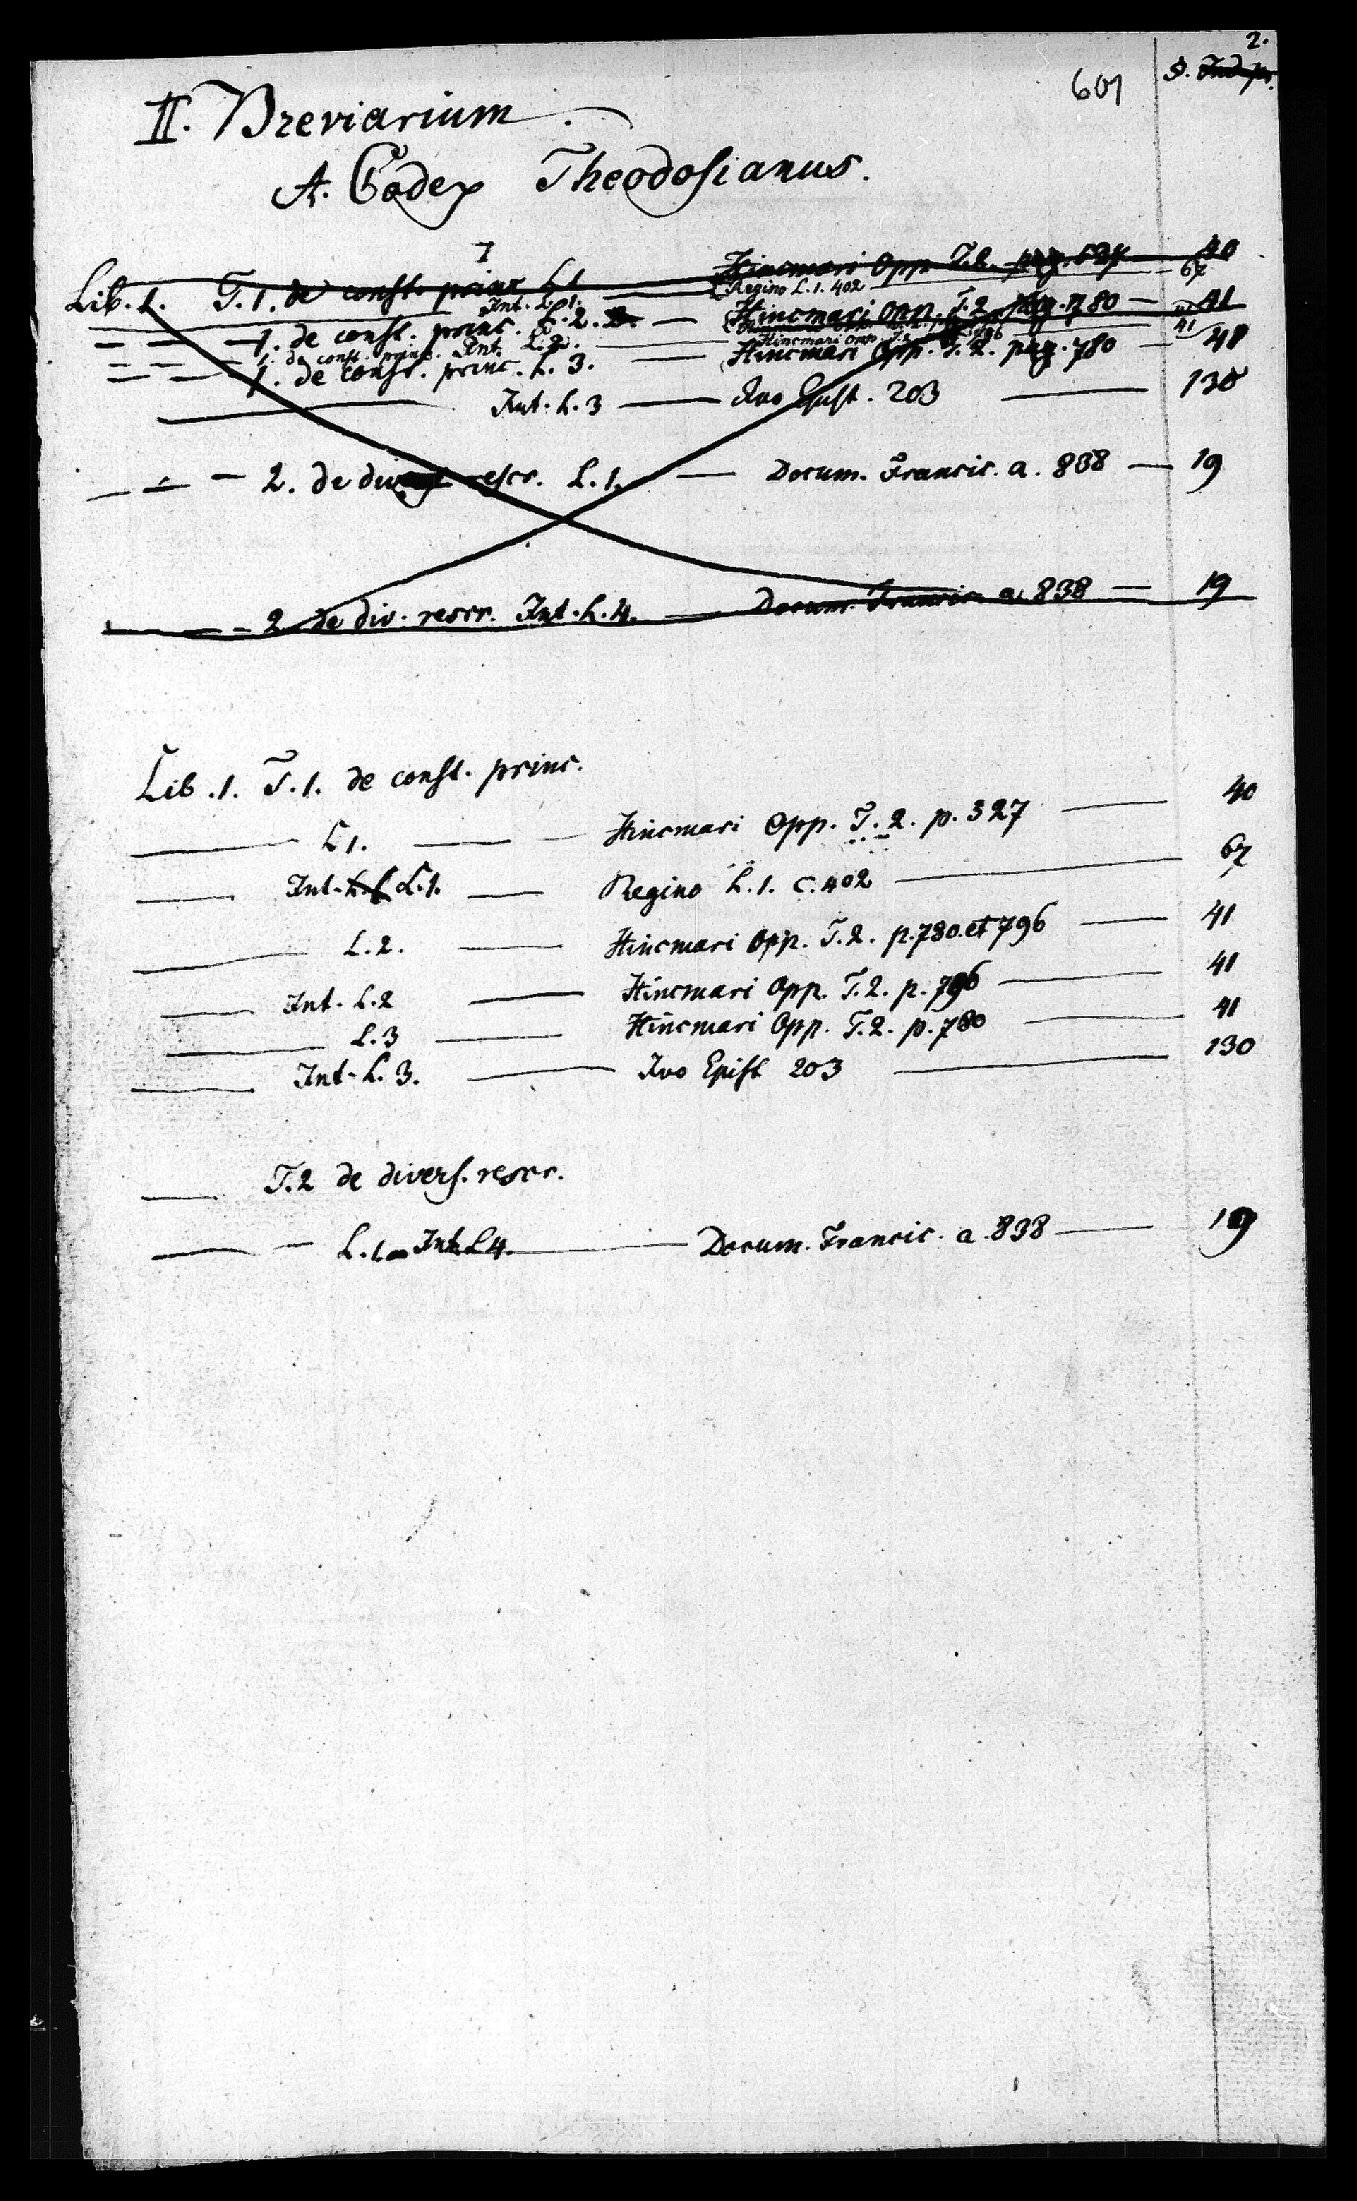 2.
601
S.
II. Breviarium.
A. Codex Theodosianus.
Lib. 1. T. 1. de const. princ. L 1 Hincmari Opp. T. 2. pag. 40
Int. L. 1. Regino L. 1. 402 67
1. de const. princ. L. 2. Hincmari Opp. T. 2. pag. 780 41
1. de const. princ. Int. L. 2. Hincmari Opp. 796 41
1. de const. princ. L. 3. Hincmari Opp. T. 2. pag. 780 41
Int. L. 3 Ivo Epist. 203 130
2. de div. rescr. L. 1. Docum. Francic. a. 838 19
2 de div. rescr. Int. L. 4. Docum. Francic. a. 838 19
Lib. 1. T. 1. de const. princ.
L 1. Hincmari Opp. T. 2. p. 327 40
Int. L. 1. Regino L. 1. c. 402 67
L. 2. Hincmari Opp. T. 2. p. 780. et 796 41
Int. L. 2 Hincmari Opp. T. 2. p. 796 41
L. 3 Hincmari Opp. T. 2. p. 780 41
Int. L. 3. Ivo Epist 203 130
T. 2 de divers. rescr.
L. 1. Int. L 4. Docum. Francic. a. 838 19